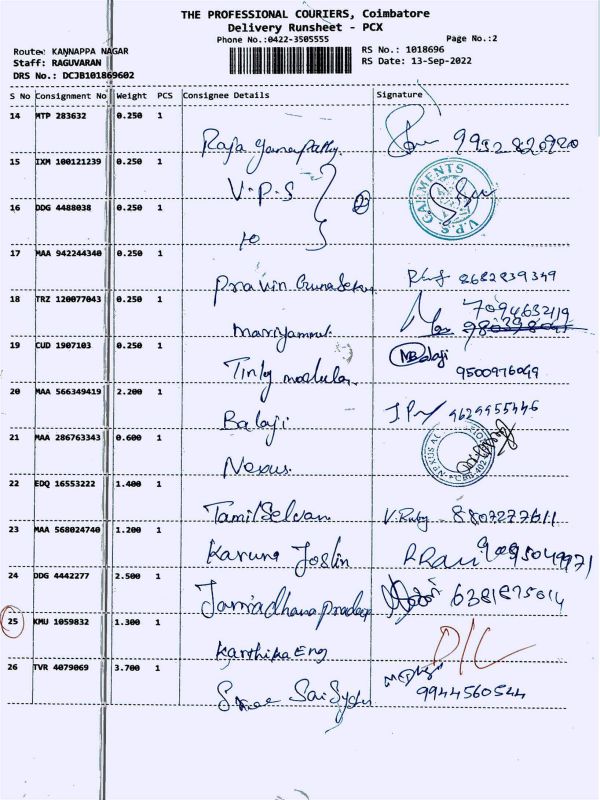 THE PROFESSIONAL COURIERS, Coimbatore
Delivery Runsheet - PCX
Phone No.:0422-3505555
Page No.:2
Route: KANNAPPA NAGAR
RS No.: 1018696
Staff: RAGUVARAN
RS Date: 13-Sep-2022
DRS No.: DCJB101869602
S No Consignment No Weight PCS Consignee Details Signature
14 MTP 283632 0.250 1
Raja Ganapathy. 9952820920
15 IXM 100121239 0.250 1
V.P.S
V.P.S. GARMENTS
16 DDG 4488038 0.250 1
17 MAA 942244340 0.250 1
Pravin Gunasekar 8682839349
18 TRZ 120077043 0.250 1
7094632119
Mariyammal
19 CUD 1907103 0.250 1
MBalaji
Tinly modular 9500976049
20 MAA 566349419 2.200 1
Balaji 9629955446
21 MAA 286763343 0.600 1
Nexus.
22 EDQ 16553222 1.400 1
TamilSelvan 8807277611
23 MAA 568024740 1.200 1
Karuna Joslin 9095049971
24 DDG 4442277 2.500 1
Janadhana pradeep 6381875014
25 KMU 1059832 1.300 1
Karthika Eng D/L
26 TVR 4079069 3.700 1
Sree Sai 9944560544